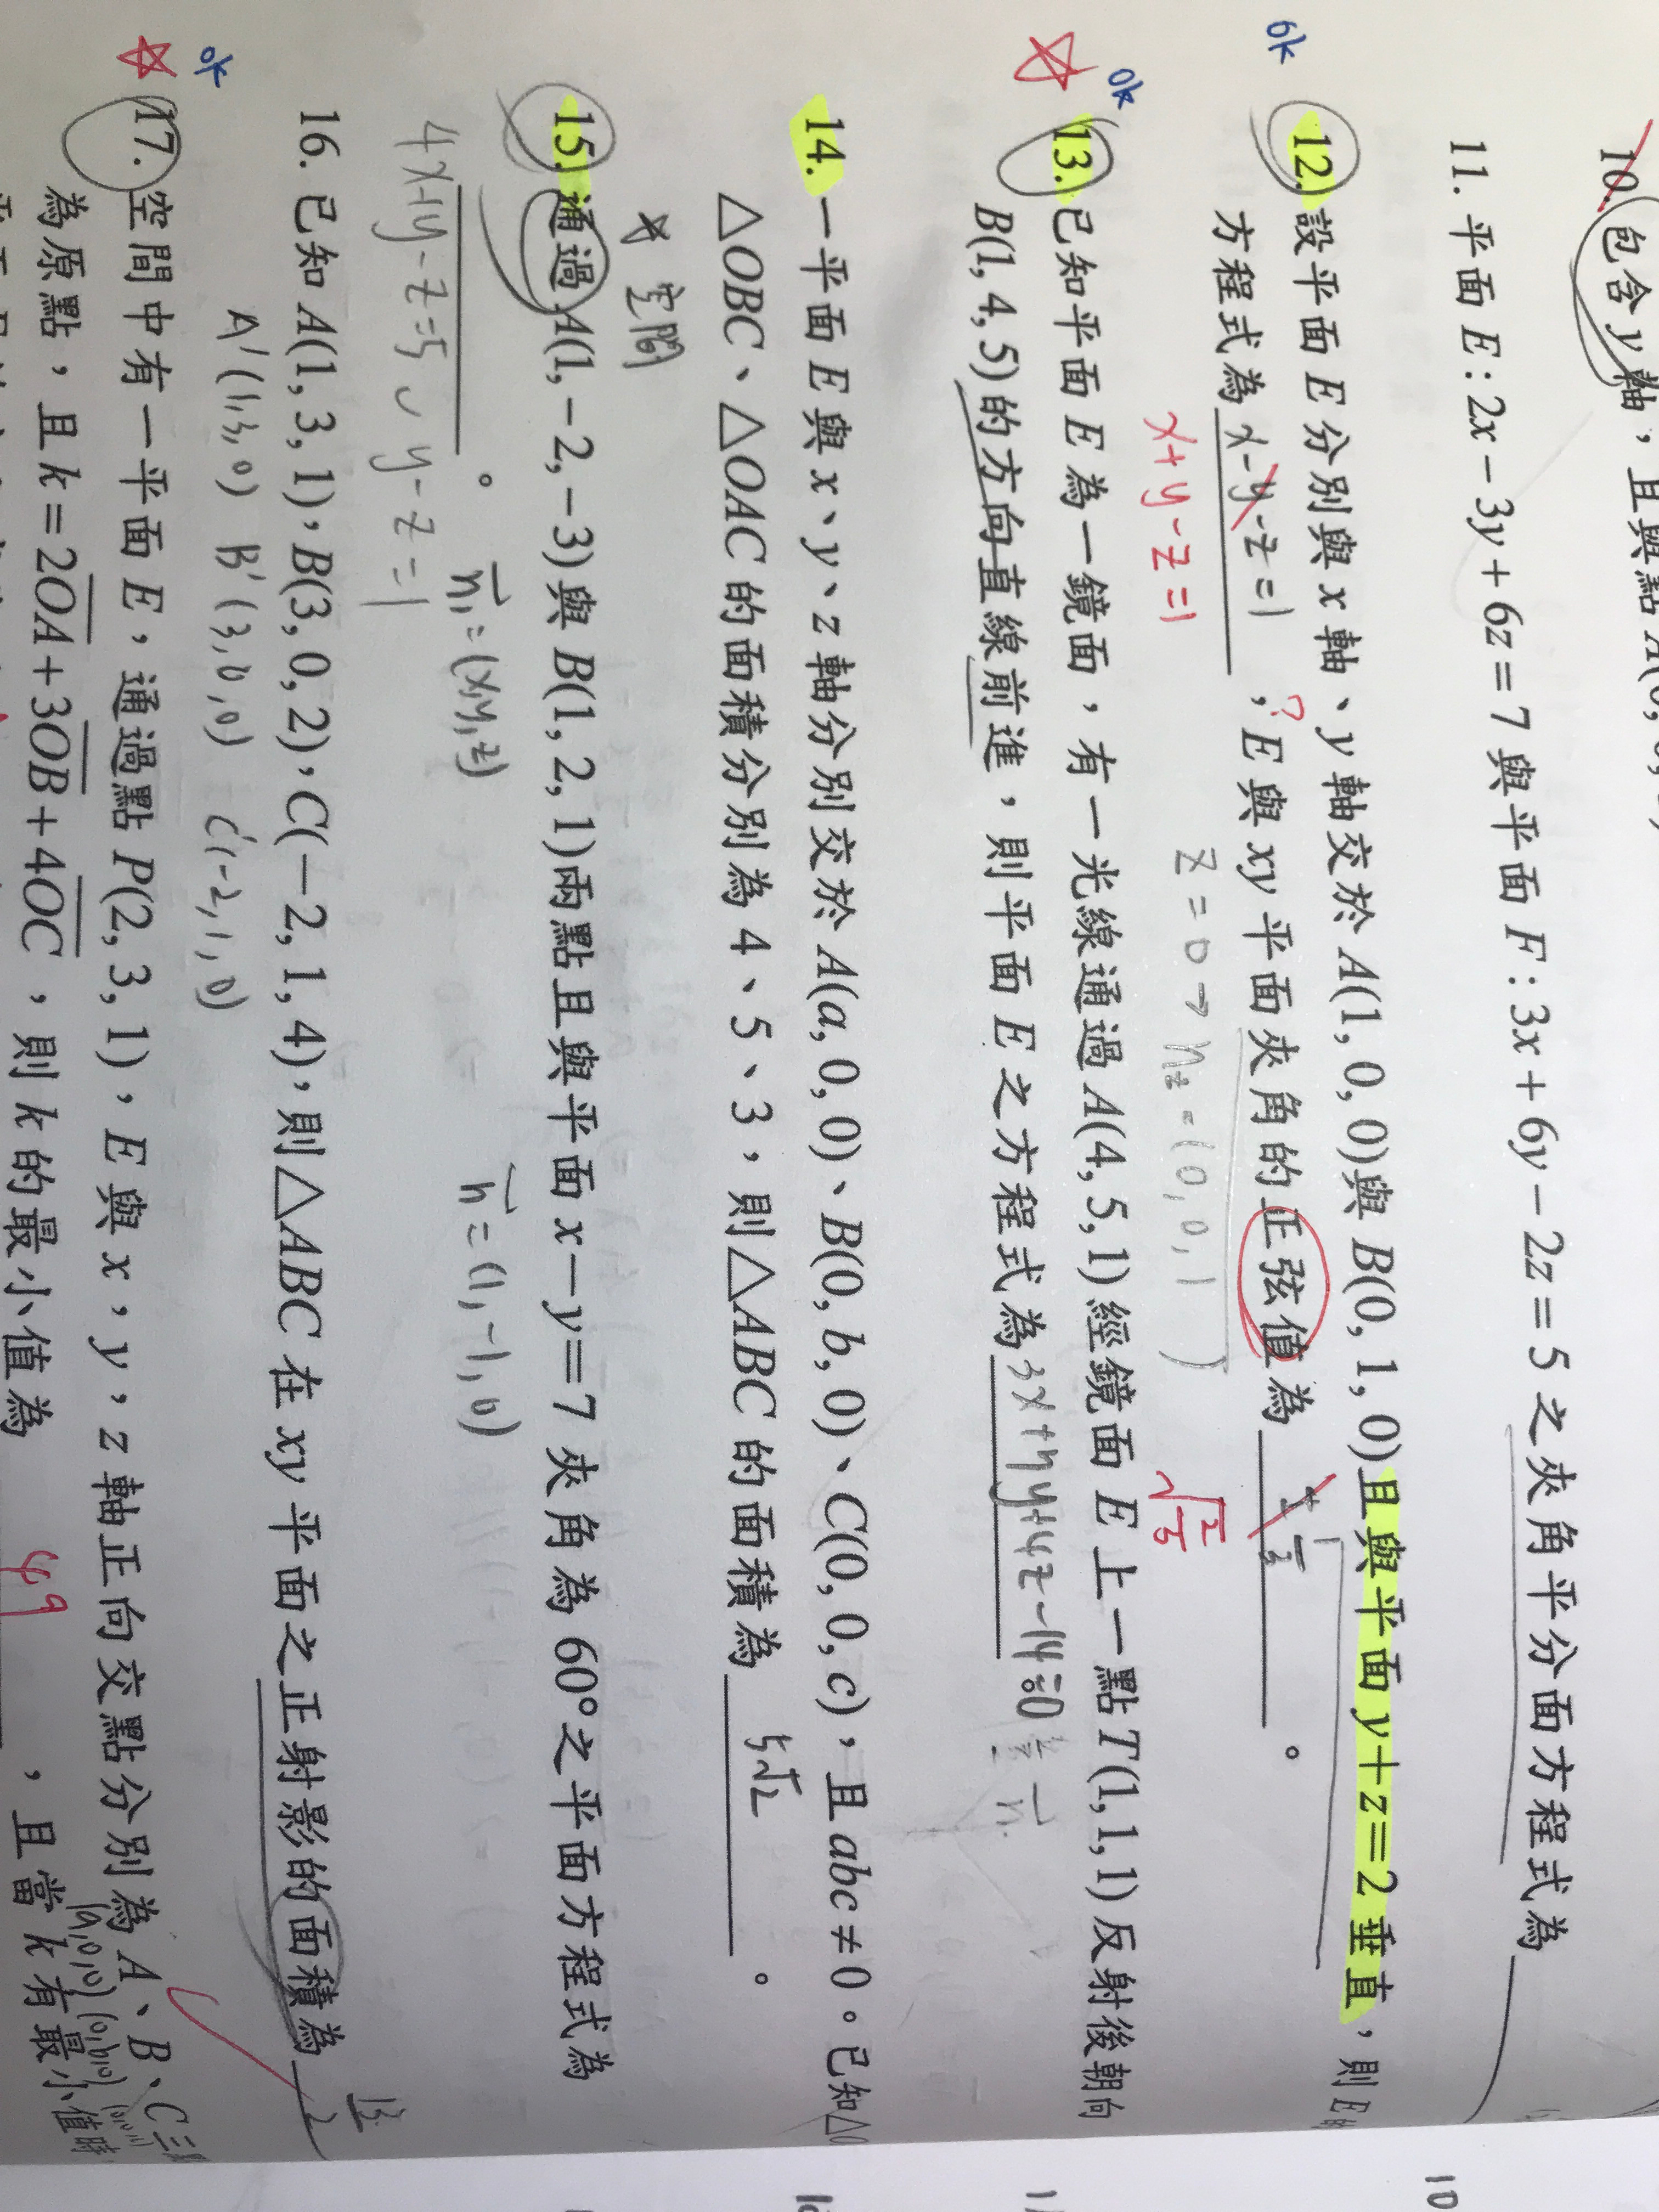 10. 包含 y 軸,且與點 A(0,
11. 平面 E : 2x − 3y + 6z = 7 與平面 F : 3x + 6y − 2z = 5 之夾角平分面方程式為
ok
12. 設平面 E 分別與 x 軸、y 軸交於 A(1, 0, 0)與 B(0, 1, 0)且與平面 y + z = 2 垂直,則 E
方程式為 x-y-z=1 ,E 與 xy 平面夾角的正弦值為 。
x+y-z=1 ? z=0→ n₂=(0,0,1)
ok
13. 已知平面 E 為一鏡面,有一光線通過 A(4, 5, 1)經鏡面 E 上一點 T(1, 1, 1)反射後朝向
B(1, 4, 5)的方向直線前進,則平面 E 之方程式為 3x+7y+4z-14=0
14. 一平面 E 與 x、y、z 軸分別交於 A(a, 0, 0)、B(0, b, 0)、C(0, 0, c),且 abc ≠ 0。已知
△OBC、△OAC 的面積分別為 4、5、3,則△ABC 的面積為 5√2 。
空間
15. 通過 A(1, −2, −3)與 B(1, 2, 1)兩點且與平面 x − y = 7 夾角為 60°之平面方程式為
。 n₁=(x,y,z) n=(1,-1,0)
4x+y-z=5 y-z=1
16. 已知 A(1, 3, 1),B(3, 0, 2),C(−2, 1, 4),則△ABC 在 xy 平面之正射影的面積為
A'(1,3,0) B'(3,0,0) C'(-2,1,0)
ok
17. 空間中有一平面 E,通過點 P(2, 3, 1),E 與 x,y,z 軸正向交點分別為 A、B、C三
為原點,且 k = 2OA + 3OB + 4OC,則 k 的最小值為 49 ,且當 k 有最小值時
10